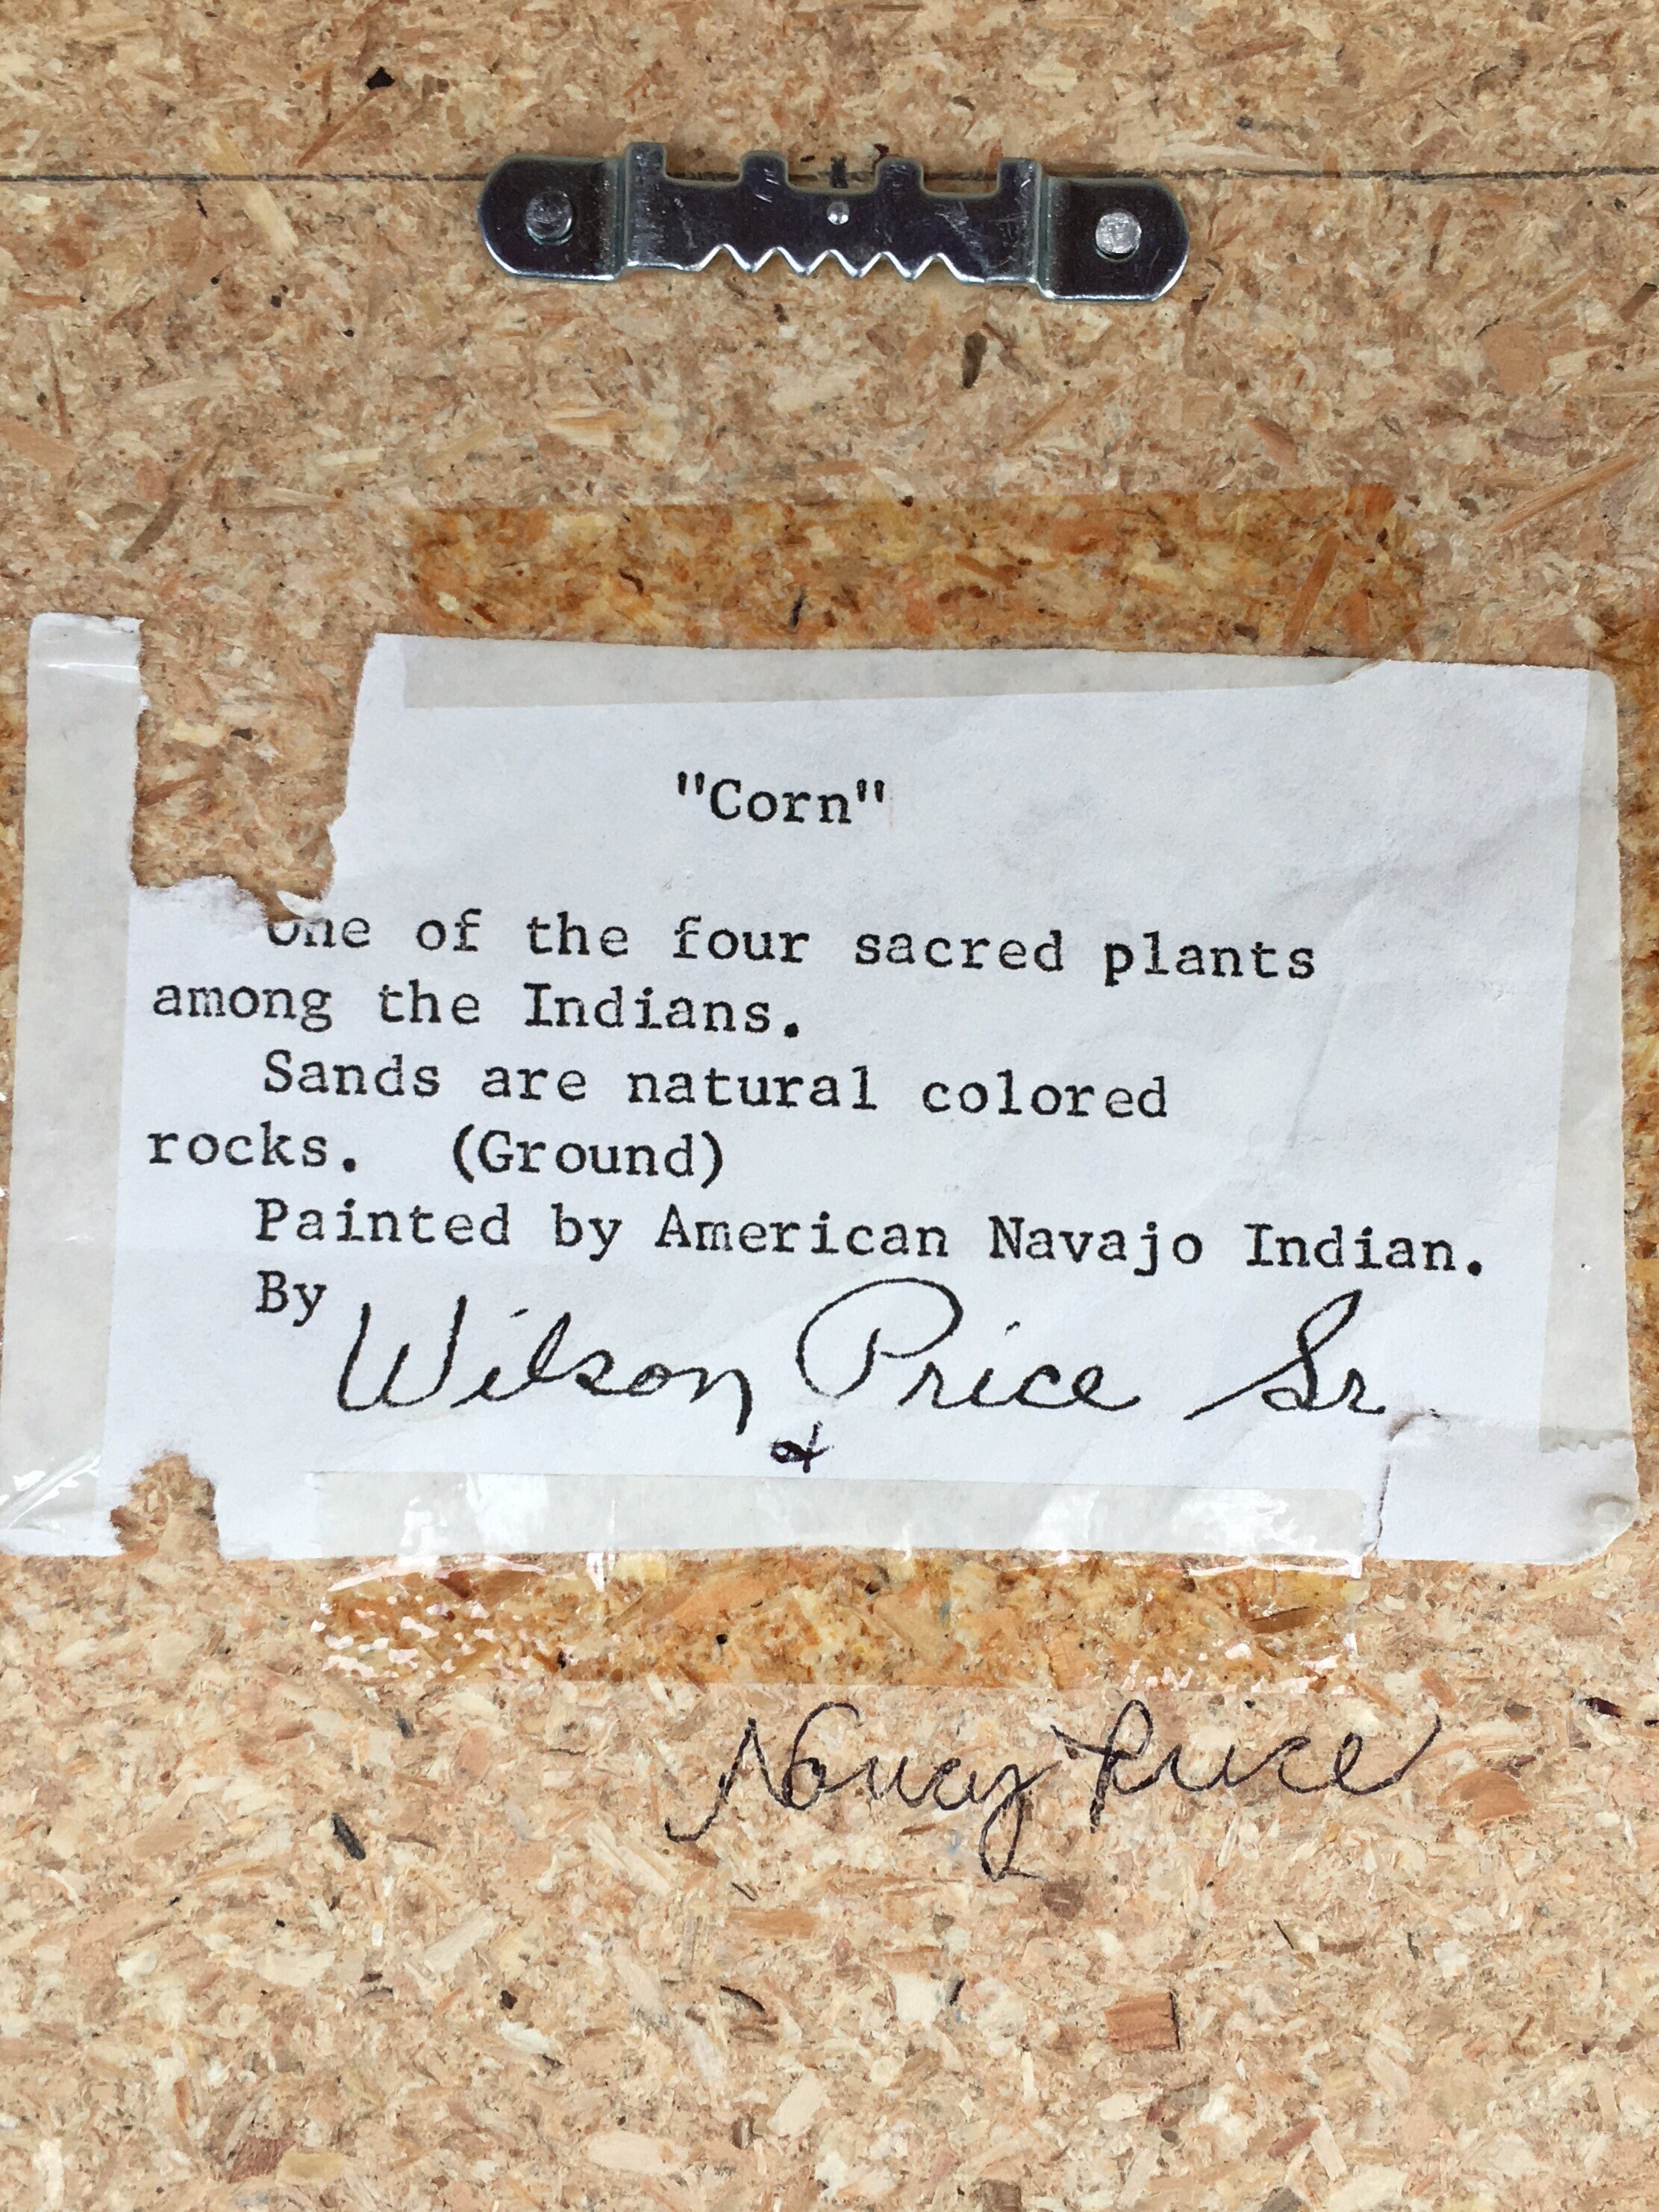 "Corn"
One of the four sacred plants
among the Indians.
Sands are natural colored
rocks. (Ground)
Painted by American Navajo Indian.
By Wilson Price Sr
&
Nancy Price